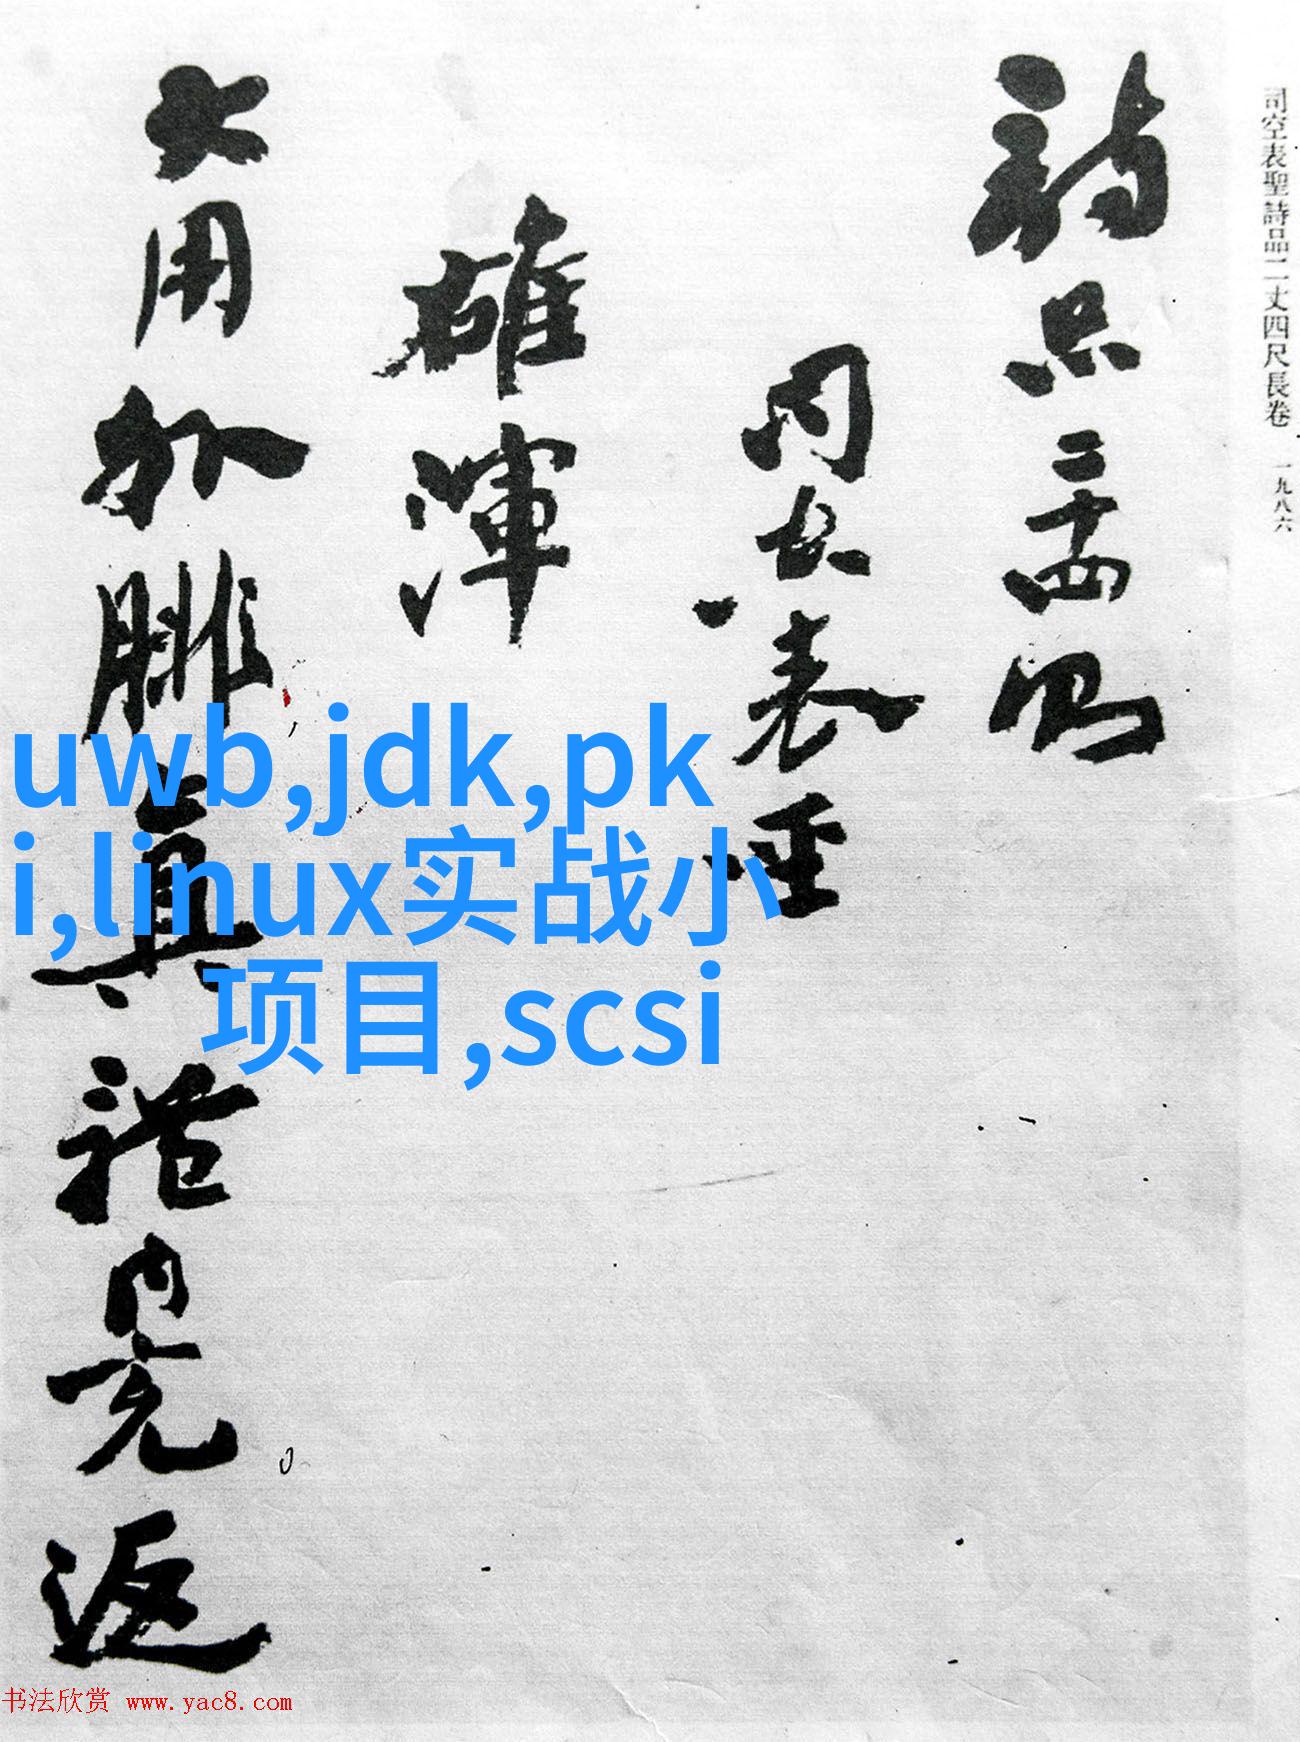 司空表聖詩品二丈四尺長卷 一九八六
詩品二十四則
司空表聖
雄渾
大用外腓真體內充返
uwb,jdk,pk
i,linux实战小
项目,scsi
书法欣赏 www.yac8.com